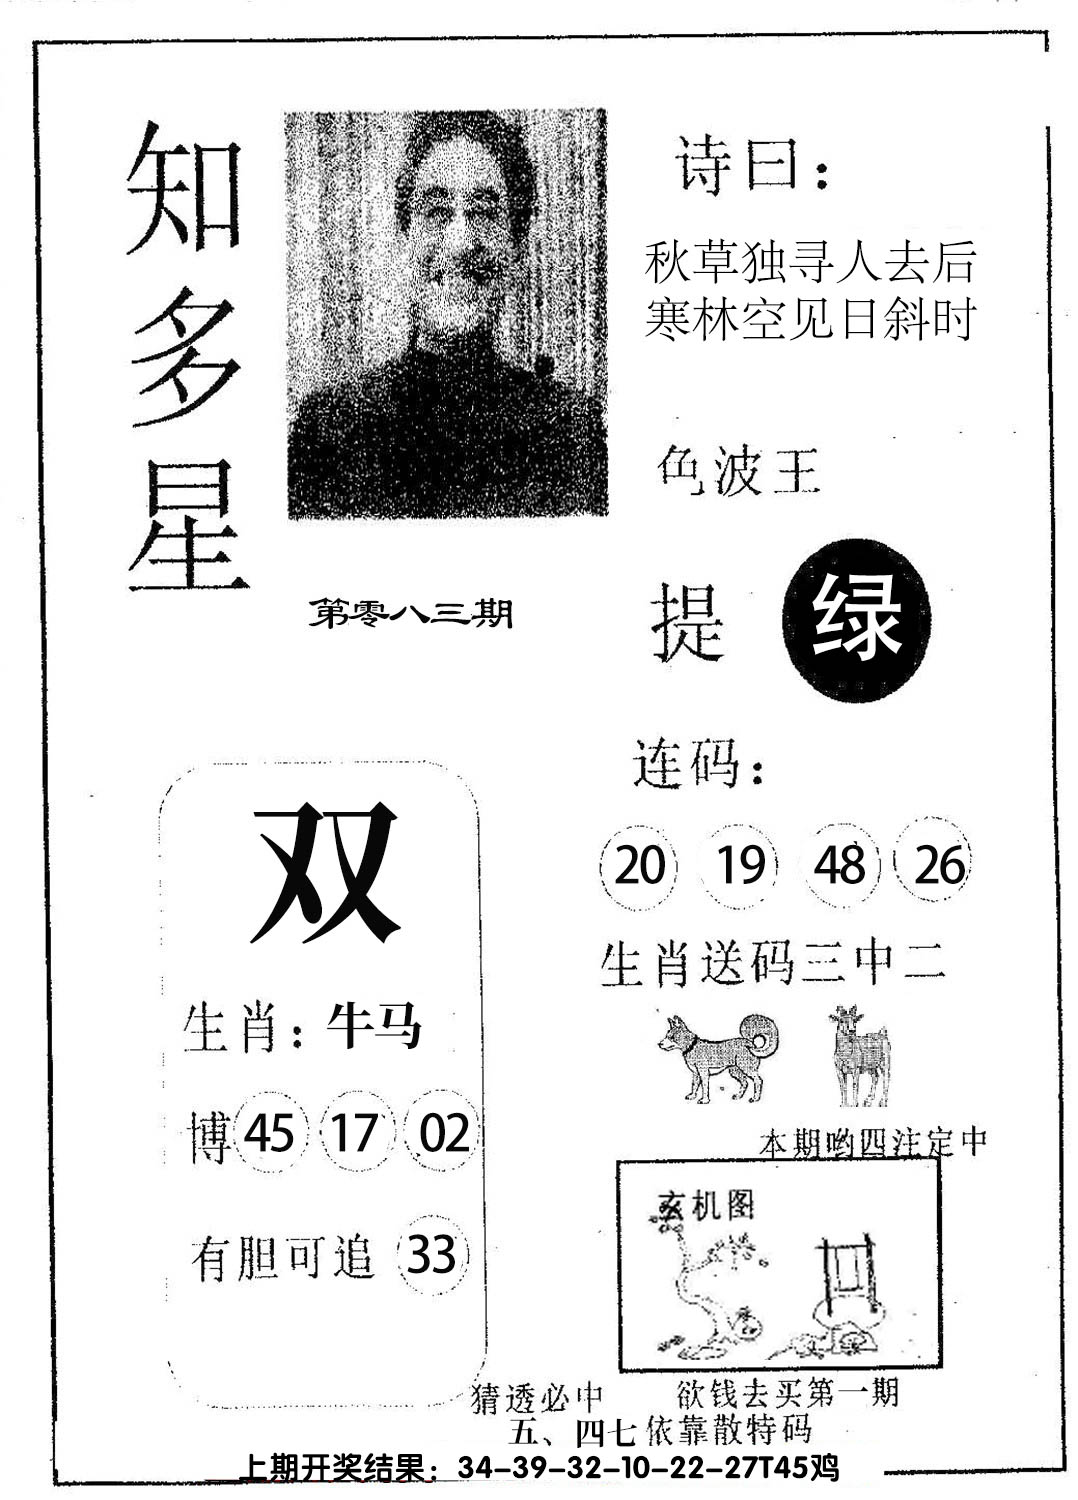 知多星
诗曰：
秋草独寻人去后
寒林空见日斜时
色波王
第零八三期
提 绿
连码：
20 19 48 26
双
生肖送码三中二
生肖：牛马
博 45 17 02
本期哟四注定中
玄机图
有胆可追 33
猜透必中 欲钱去买第一期
五、四七依靠散特码
上期开奖结果：34-39-32-10-22-27T45鸡